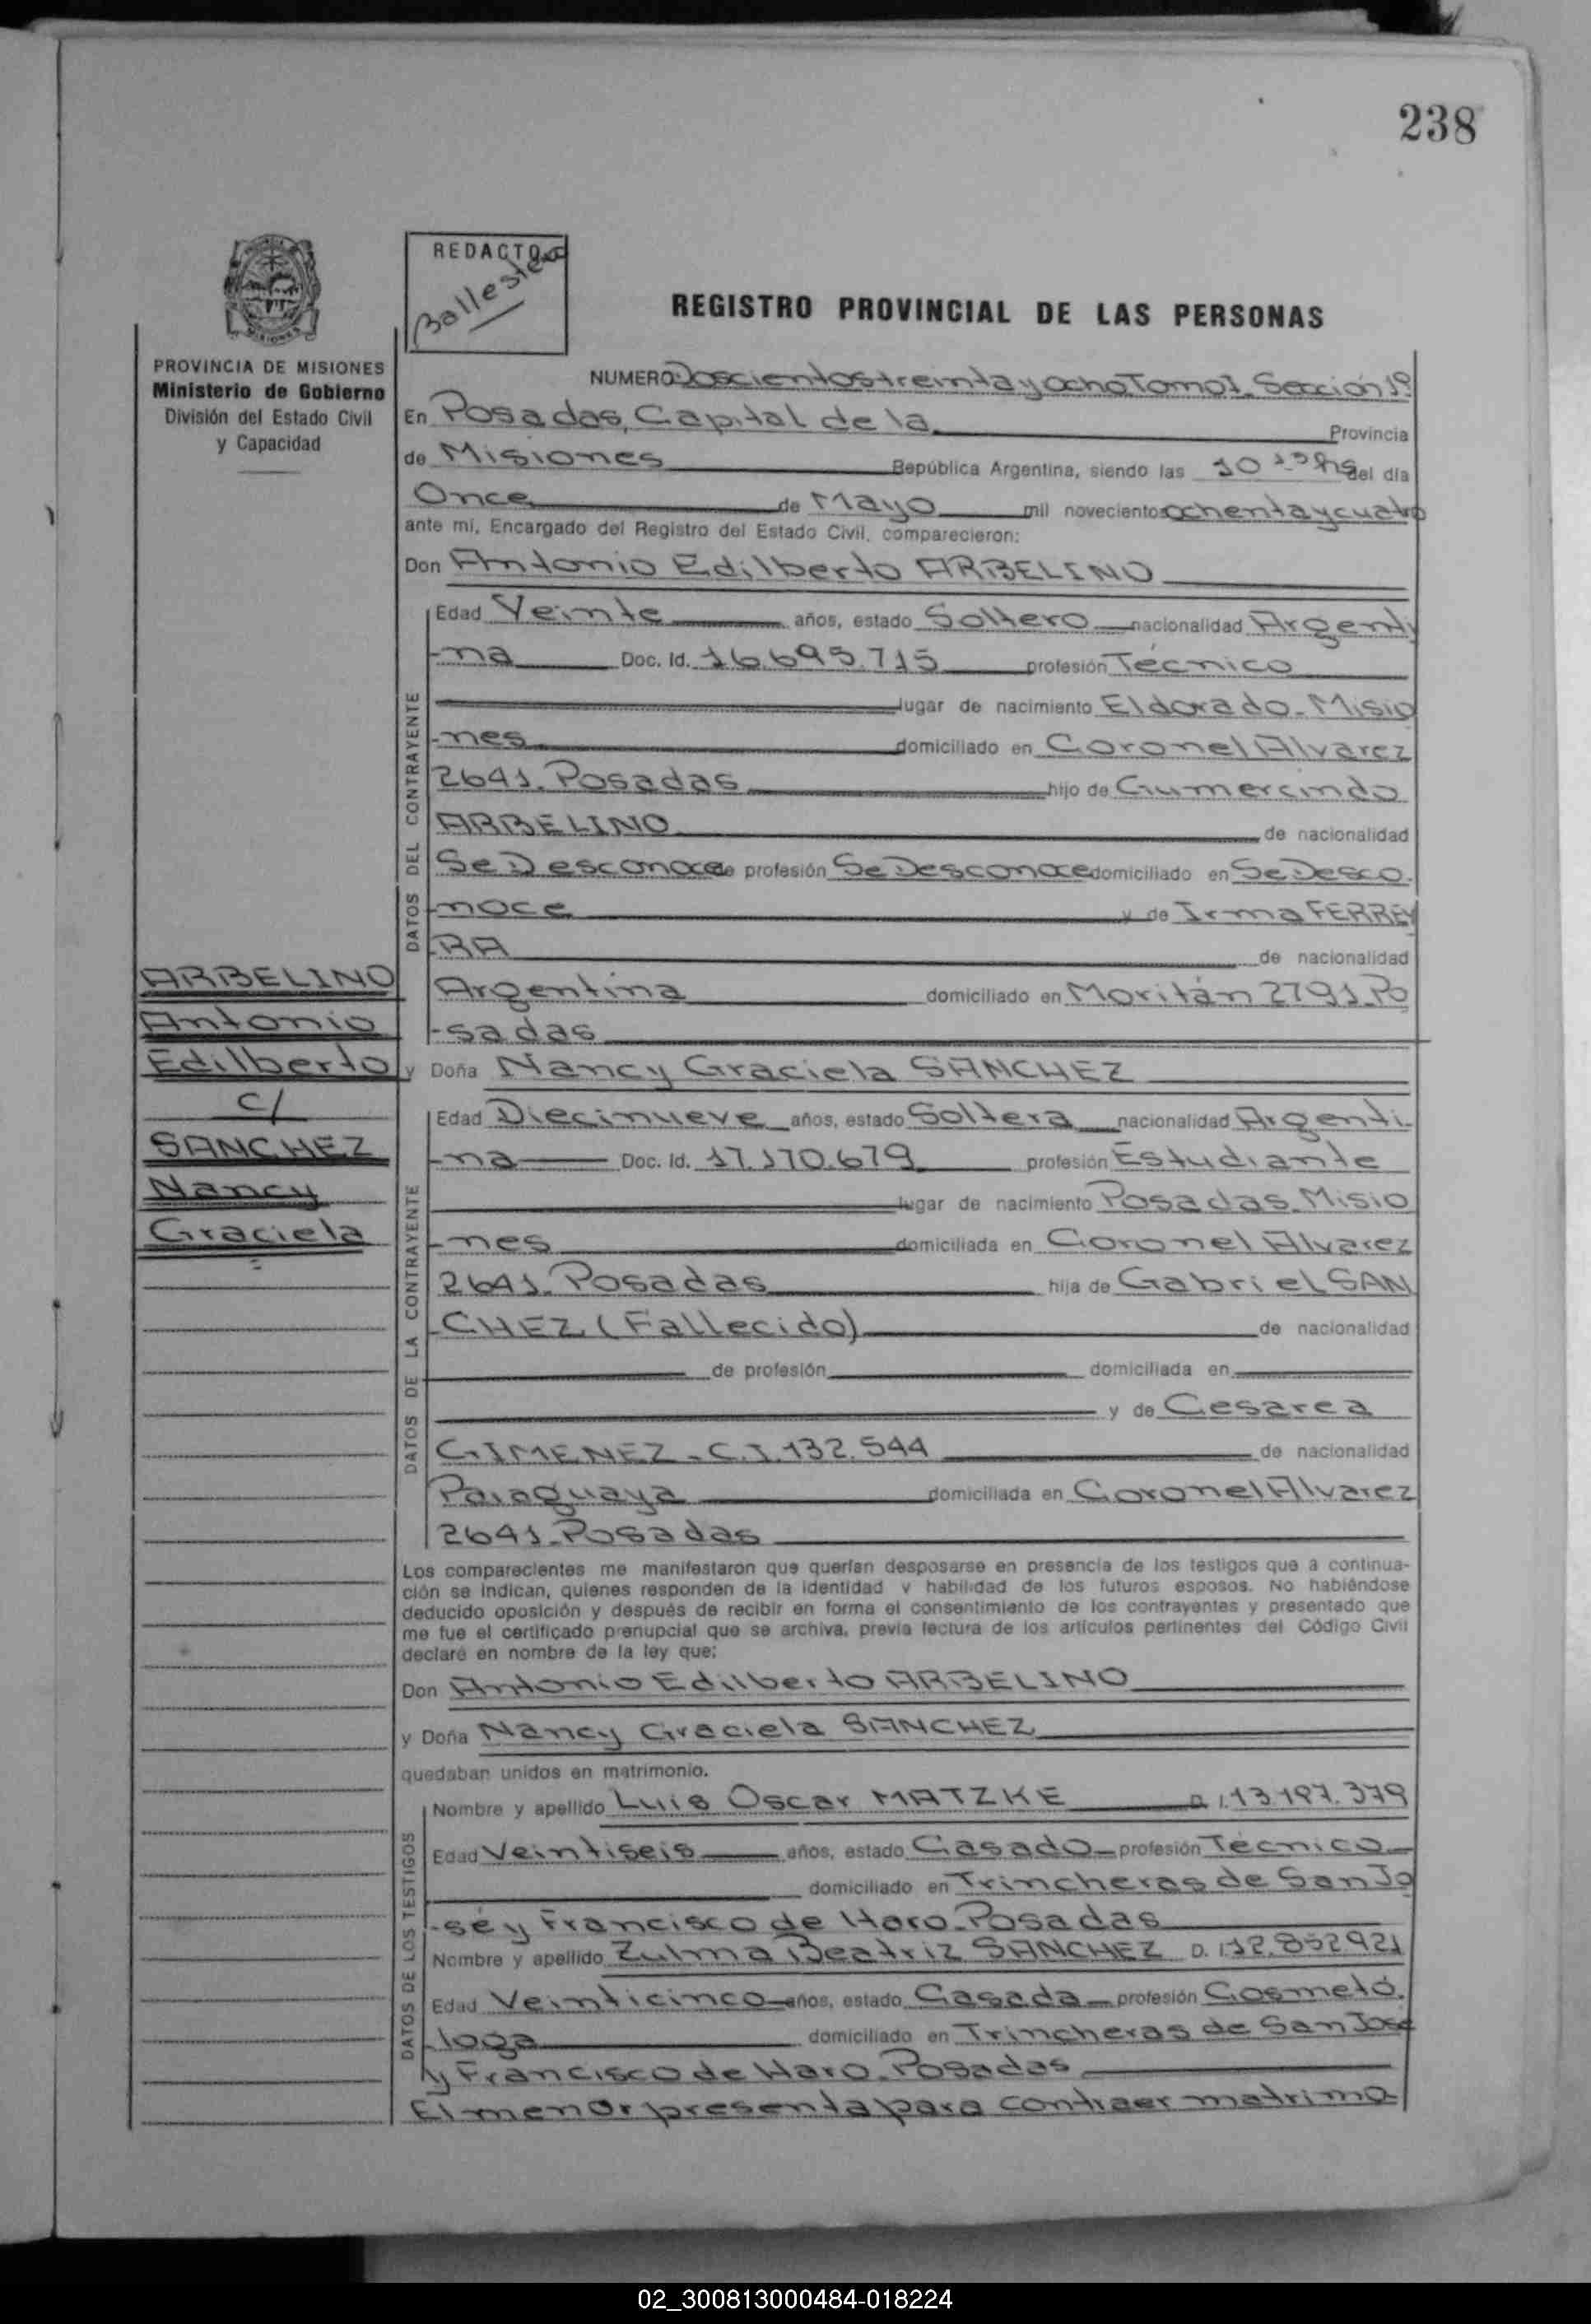 238
REDACTOR
Ballester
REGISTRO PROVINCIAL DE LAS PERSONAS
PROVINCIA DE MISIONES
Ministerio de Gobierno
División del Estado Civil
y Capacidad
NUMERO: Doscientos treinta y ocho Tomo I. Sección 1º
En Posadas, Capital de la Provincia
de Misiones República Argentina, siendo las 10 hs del día
Once de Mayo mil novecientos ochenta y cuatro
ante mi, Encargado del Registro del Estado Civil, comparecieron:
Don Antonio Edilberto ARBELINO
DATOS DEL CONTRAYENTE
Edad Veinte años, estado Soltero nacionalidad Argenti
-na Doc. Id. 16.695.715 profesión Técnico
lugar de nacimiento Eldorado - Misio
-nes domiciliado en Coronel Alvarez
2641. Posadas hijo de Gumercindo
ARBELINO de nacionalidad
Se Desconoce de profesión Se Desconoce domiciliado en Se Desco.
-noce y de Irma FERREY
-RA de nacionalidad
Argentina domiciliado en Moritán 2791. Po
-sadas
y Doña Nancy Graciela SANCHEZ
ARBELINO
Antonio
Edilberto
c/
SANCHEZ
Nancy
Graciela
DATOS DE LA CONTRAYENTE
Edad Diecinueve años, estado Soltera nacionalidad Argenti-
-na Doc. Id. 17.170.679 profesión Estudiante
lugar de nacimiento Posadas. Misio
-nes domiciliada en Coronel Alvarez
2641. Posadas hija de Gabriel SAN
-CHEZ (Fallecido) de nacionalidad
de profesión domiciliada en
y de Cesarea
GIMENEZ - C.I. 132.544 de nacionalidad
Paraguaya domiciliada en Coronel Alvarez
2641. Posadas
Los comparecientes me manifestaron que querían desposarse en presencia de los testigos que a continua-
ción se indican, quienes responden de la identidad y habilidad de los futuros esposos. No habiéndose
deducido oposición y después de recibir en forma el consentimiento de los contrayentes y presentado que
me fue el certificado prenupcial que se archiva, previa lectura de los artículos pertinentes del Código Civil
declaré en nombre de la ley que:
Don Antonio Edilberto ARBELINO
y Doña Nancy Graciela SANCHEZ
quedaban unidos en matrimonio.
DATOS DE LOS TESTIGOS
Nombre y apellido Luis Oscar MATZKE D.I. 13.197.379
Edad Veintiseis años, estado Casado - profesión Tecnico
domiciliado en Trincheras de San Jo
-sé y Francisco de Haro. Posadas
Nombre y apellido Zulma Beatriz SANCHEZ D.I. 12.852.921
Edad Veinticinco años, estado Casada - profesión Cosmetó.
-loga domiciliado en Trincheras de San José
y Francisco de Haro. Posadas
El menor presenta para contraer matrimo-
02_300813000484-018224